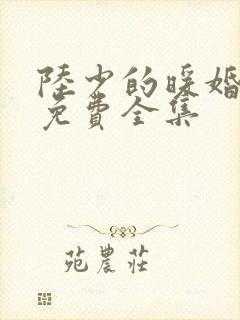 陸少的暖婚
免費全集
苑農莊